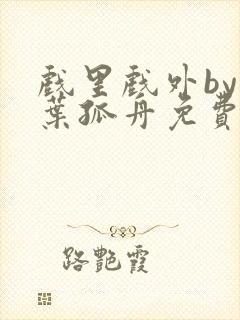 戲里戲外by
葉孤舟免費
路艷霞